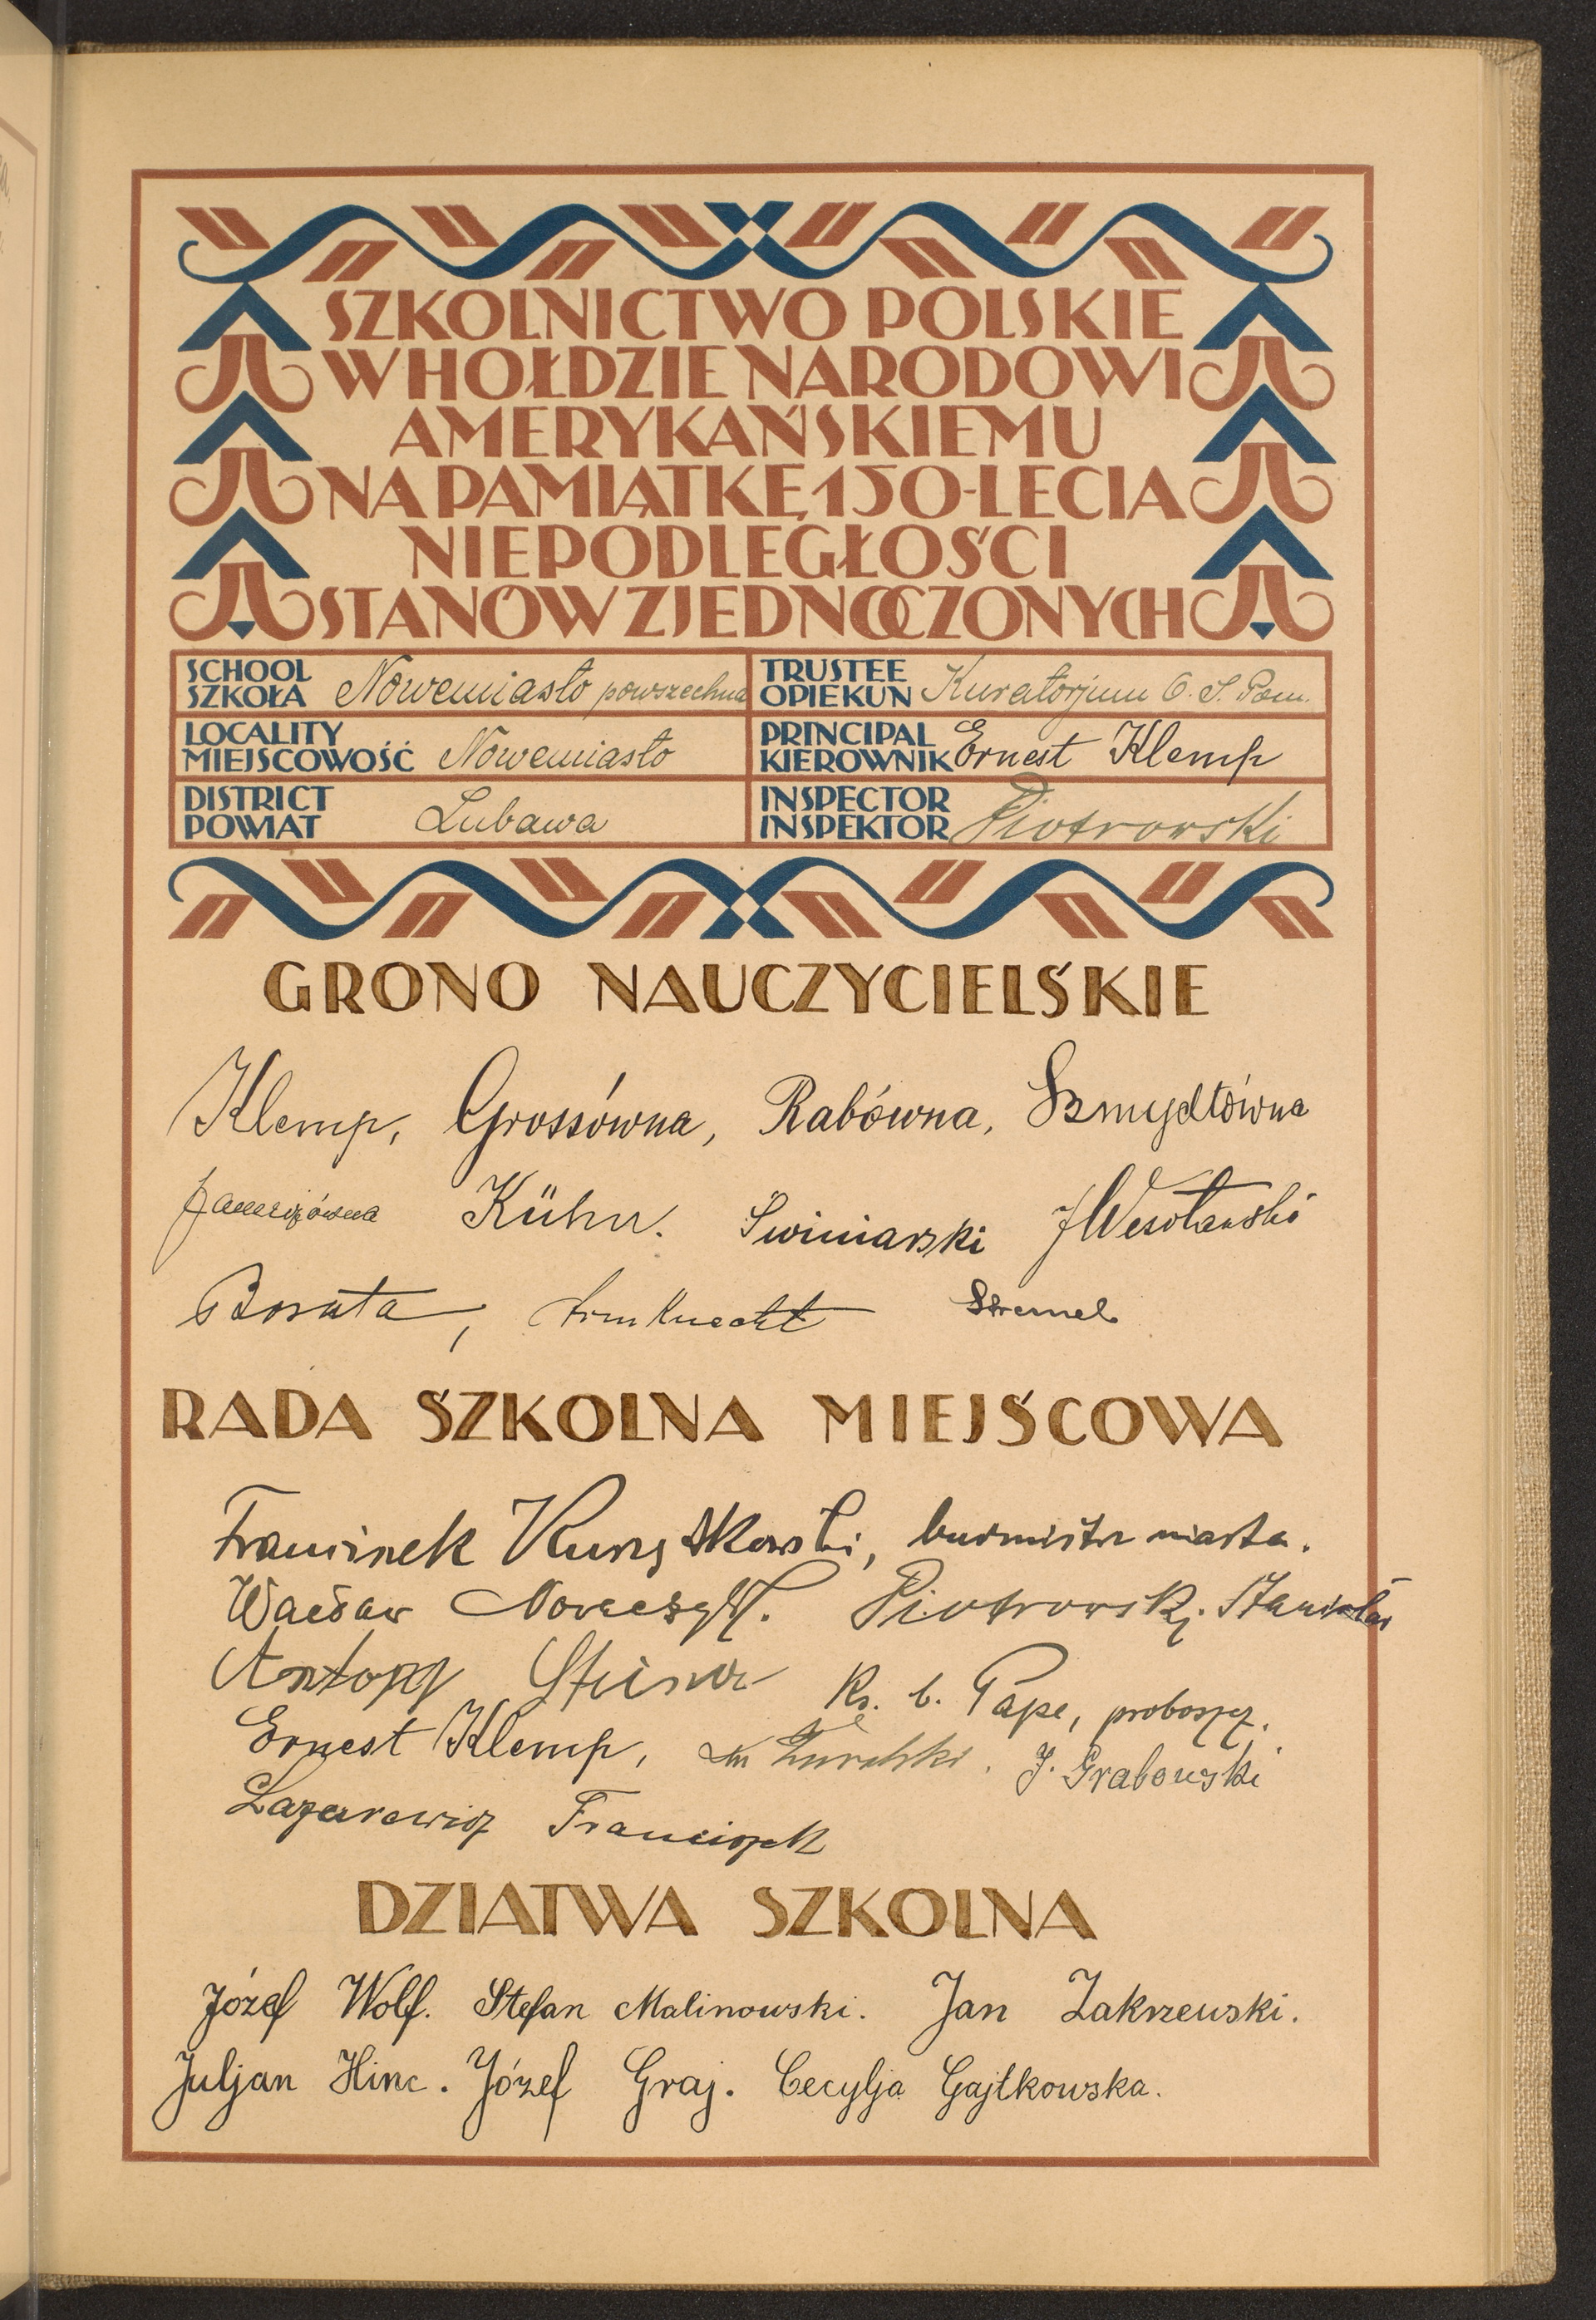 SZKOLNICTWO POLSKIE
W HOŁDZIE NARODOWI
AMERYKAŃSKIEMU
NA PAMIĄTKĘ 150-LECIA
NIEPODLEGŁOŚCI
STANÓW ZJEDNOCZONYCH
SCHOOL
SZKOŁA Nowemiasto powszechna
TRUSTEE
OPIEKUN Kuratorjum O. S. Pom.
LOCALITY
MIEJSCOWOŚĆ Nowemiasto
PRINCIPAL
KIEROWNIK Ernest Klemp
DISTRICT
POWIAT Lubawa
INSPECTOR
INSPEKTOR Piotrowski
GRONO NAUCZYCIELSKIE
Klemp, Grossówna, Rabówna, Szmydtówna
Kühn. Świniarski J Wesołowski
Boruta,
RADA SZKOLNA MIEJSCOWA
Franciszek Kurzętkowski, burmistrz miasta.
Wacław Piotrowski Stanisław
Antoni Ks. b. Pape, proboszcz.
Ernest Klemp, J. Grabowski
Lazarewicz Franciszek
DZIATWA SZKOLNA
Józef Wolf. Stefan Malinowski. Jan Zakrzewski.
Juljan Hinc. Józef Graj. Cecylja Gajtkowska.